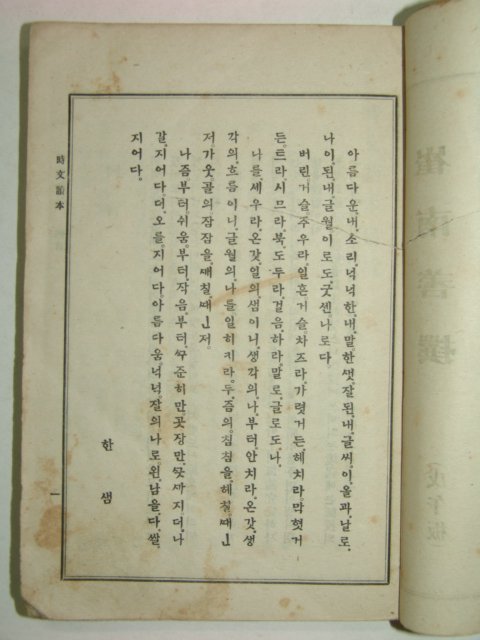 아름다운,내,소리,넉넉한,내,말한셋,잘된,내,글씨,이올과,날로,
나이,된,내,글월이로도,굿센나로다.
버린거슬주우라,일흔거슬차즈라,가렷거든헤치라,막혓거
든,트라,시므라,북,도두라,걸음,하라,말로,글로도,나,
나를,세우라,온갓,열의,샘이니,생각의,나,부터,안치라,온갓,생
각의,흐름이니,글월의,나를일히지라,두,즘의,침침을,헤칠ᄯᅢㅣㄴ
저,가웃,골의잠잠을,ᄭᅢ칠ᄯᅢㅣㄴ저.
나즘부터,쉬움부터,작음부터,ᄭᅮ준히만,곳장만,ᄭᅳᆺᄭᅡ지더,나
갈지어다,더,오를,지어다아름다움,넉넉,잘의나로,왼,남을,다,쌀,
지어다.
한샘
時文讀本
一